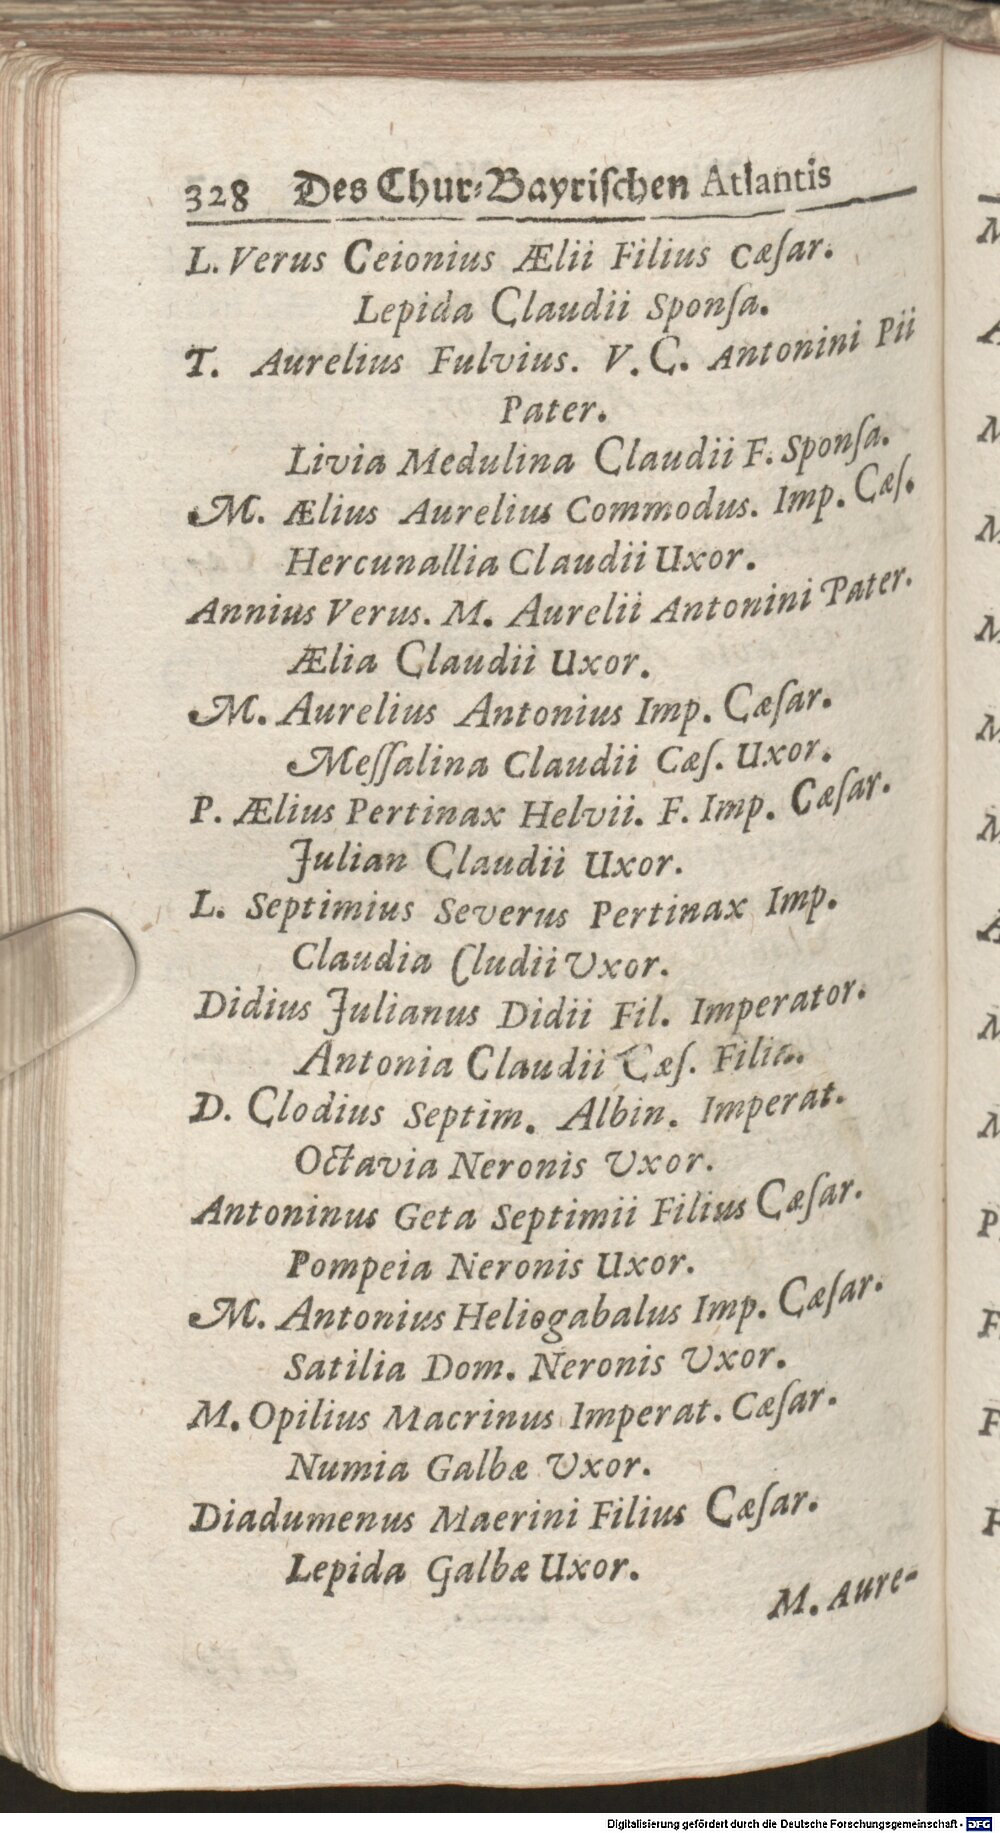 328 Des Chur-Bayrischen Atlantis
L. Verus Ceionius Ælii Filius Cæſar.
Lepida Claudii Sponſa.
T. Aurelius Fulvius. V. C. Antonini Pii
Pater.
Livia Medulina Claudii F. Sponſa.
M. Ælius Aurelius Commodus. Imp. Cæſ.
Hercunallia Claudii Uxor.
Annius Verus. M. Aurelii Antonini Pater.
Ælia Claudii Uxor.
M. Aurelius Antonius Imp. Cæſar.
Meſſalina Claudii Cæſ. Uxor.
P. Ælius Pertinax Helvii. F. Imp. Cæſar.
Julian Claudii Uxor.
L. Septimius Severus Pertinax Imp.
Claudia Cludii Vxor.
Didius Julianus Didii Fil. Imperator.
Antonia Claudii Cæſ. Filia.
D. Clodius Septim. Albin. Imperat.
Octavia Neronis Vxor.
Antoninus Geta Septimii Filius Cæſar.
Pompeia Neronis Uxor.
M. Antonius Heliogabalus Imp. Cæſar.
Satilia Dom. Neronis Vxor.
M. Opilius Macrinus Imperat. Cæſar.
Numia Galbæ Vxor.
Diadumenus Maerini Filius Cæſar.
Lepida Galbæ Uxor.
M. Aure-
Digitalisierung gefördert durch die Deutsche Forschungsgemeinschaft - DFG